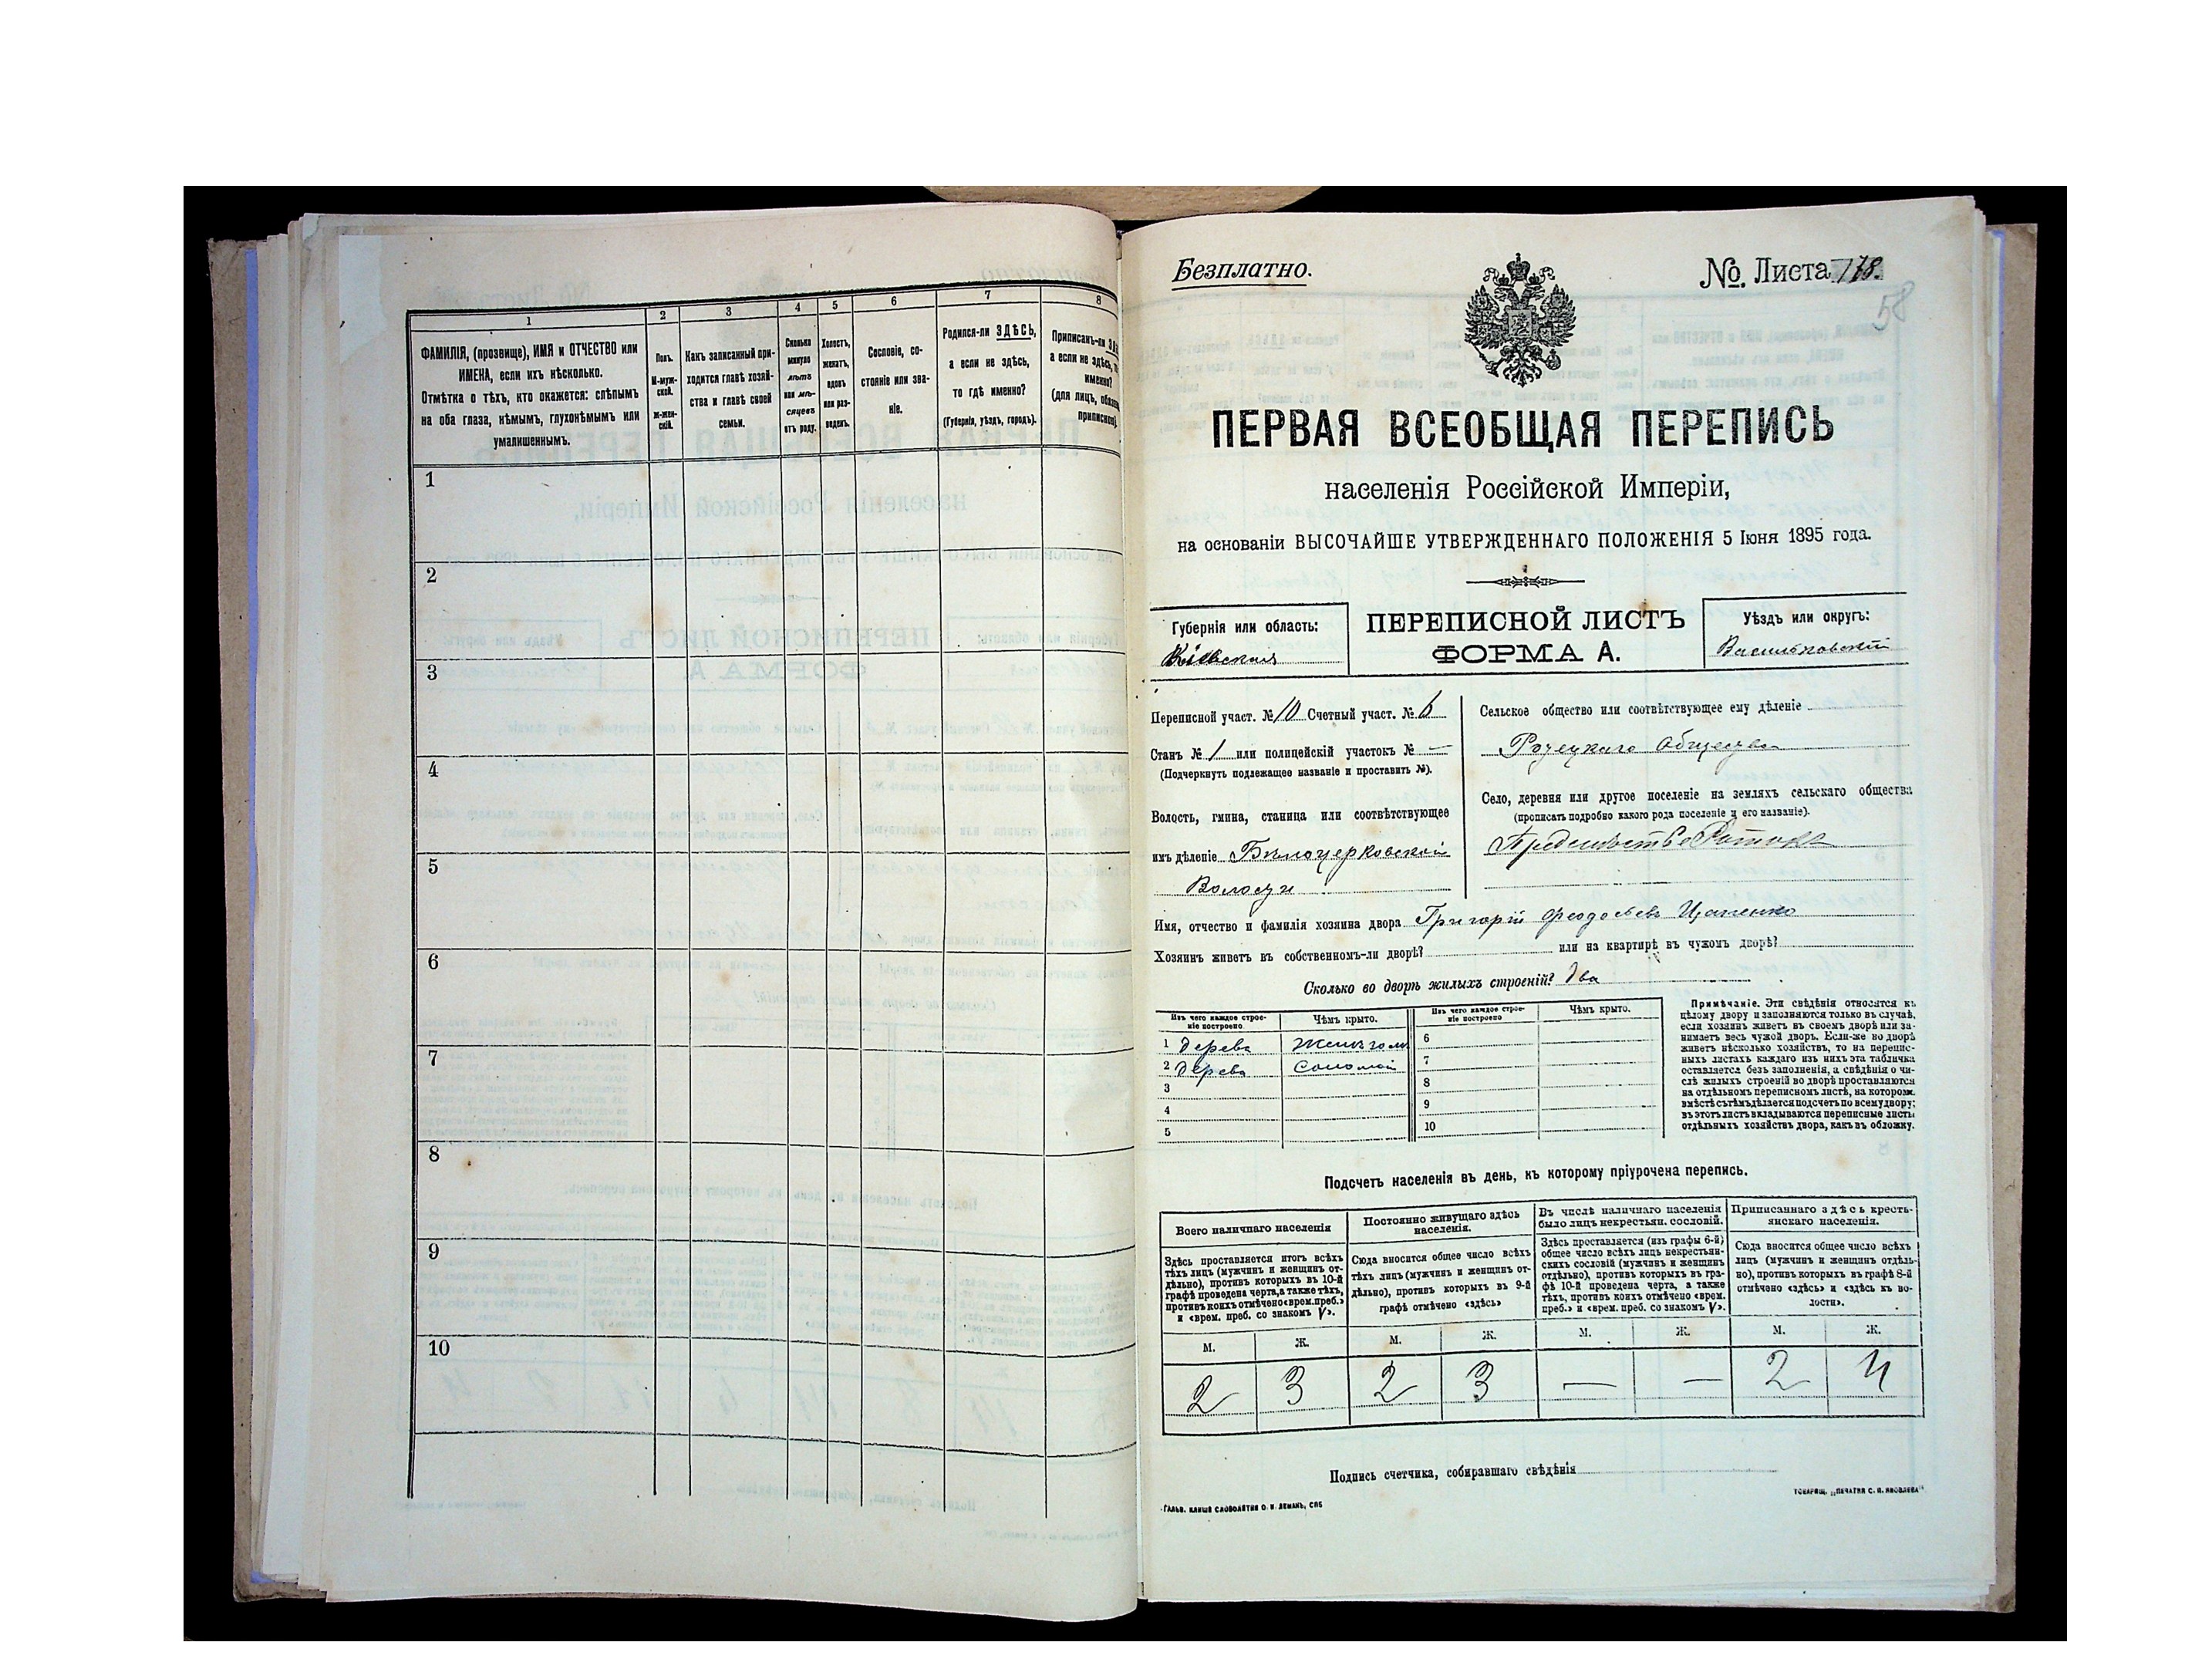 1
2
3
4
5
6
7
8
ФАМИЛІЯ, (прозвище), ИМЯ и ОТЧЕСТВО или
ИМЕНА, если ихъ нѣсколько.
Отмѣтка о тѣхъ, кто окажется: слѣпымъ
на оба глаза, нѣмымъ, глухонѣмымъ или
умалишеннымъ.
Полъ.
М-муж-
ской.
Ж-жен-
скій.
Какъ записанный при-
ходится главѣ хозяй-
ства и главѣ своей
семьи.
Сколько
минуло
лѣтъ
или мѣ-
сяцевъ
отъ роду.
Холостъ,
женатъ,
вдовъ
или раз-
веденъ.
Сословіе, со-
стояніе или зва-
ніе.
Родился-ли ЗДѢСЬ,
а если не здѣсь,
то гдѣ именно?
(Губернія, уѣздъ, городъ).
Приписанъ-ли
а если не здѣсь,
именно?
(для лицъ,
1
2
3
4
5
6
7
8
9
10
Безплатно.
№. Листа 178.
58
ПЕРВАЯ ВСЕОБЩАЯ ПЕРЕПИСЬ
населенія Россійской Имперіи,
на основаніи ВЫСОЧАЙШЕ УТВЕРЖДЕННАГО ПОЛОЖЕНІЯ 5 Іюня 1895 года.
Губернія или область:
Кіевская
ПЕРЕПИСНОЙ ЛИСТЪ
ФОРМА А.
Уѣздъ или округъ:
Васильковскій
Переписной участ. № 10 Счетный участ. № 6
Станъ № 1 или полицейскій участокъ № —
(Подчеркнуть подлежащее названіе и проставить №).
Волость, гмина, станица или соотвѣтствующее
имъ дѣленіе Бѣлоцерковской
Волости
Сельское общество или соотвѣтствующее ему дѣленіе
Общества
Село, деревня или другое поселеніе на земляхъ сельскаго общества
(прописать подробно какого рода поселеніе и его названіе).
Предмѣстье Ротокъ
Имя, отчество и фамилія хозяина двора Григорій Феодосьевъ Цапенко
Хозяинъ живетъ въ собственномъ-ли дворѣ? или на квартирѣ въ чужомъ дворѣ?
Сколько во дворѣ жилыхъ строеній? два
Изъ чего каждое строе-
ніе построено
Чѣмъ крыто.
Изъ чего каждое строе-
ніе построено
Чѣмъ крыто.
1 дерева Желѣзомъ 6
2 дерева Соломой 7
3 8
4 9
5 10
Примѣчаніе. Эти свѣдѣнія относятся къ
цѣлому двору и заполняются только въ случаѣ,
если хозяинъ живетъ въ своемъ дворѣ или за-
нимаетъ весь чужой дворъ. Если-же во дворѣ
живетъ нѣсколько хозяйствъ, то на перепис-
ныхъ листахъ каждаго изъ нихъ эта табличка
оставляется безъ заполненія, а свѣдѣнія о чи-
слѣ жилыхъ строеній во дворѣ проставляются
на отдѣльномъ переписномъ листѣ, на которомъ
вмѣстѣ съ тѣмъ дѣлается подсчетъ по всему двору;
въ этотъ листъ вкладываются переписные листы
отдѣльныхъ хозяйствъ двора, какъ въ обложку.
Подсчетъ населенія въ день, къ которому пріурочена перепись.
Всего наличнаго населенія
Здѣсь проставляется итогъ всѣхъ
тѣхъ лицъ (мужчинъ и женщинъ от-
дѣльно), противъ которыхъ въ 10-й
графѣ проведена черта, а также тѣхъ,
противъ коихъ отмѣчено «врем. преб.»
и «врем. преб. со знакомъ V».
Постоянно живущаго здѣсь
населенія.
Сюда вносится общее число всѣхъ
тѣхъ лицъ (мужчинъ и женщинъ от-
дѣльно), противъ которыхъ въ 9-й
графѣ отмѣчено «здѣсь»
Въ числѣ наличнаго населенія
было лицъ некрестьян. сословій.
Здѣсь проставляется (изъ графы 6-й)
общее число всѣхъ лицъ некрестьян-
скихъ сословій (мужчинъ и женщинъ
отдѣльно), противъ которыхъ въ гра-
фѣ 10-й проведена черта, а также
тѣхъ, противъ коихъ отмѣчено «врем.
преб.» и «врем. преб. со знакомъ V».
Приписаннаго здѣсь кресть-
янскаго населенія.
Сюда вносится общее число всѣхъ
лицъ (мужчинъ и женщинъ отдѣль-
но), противъ которыхъ въ графѣ 8-й
отмѣчено «здѣсь» и «здѣсь къ во-
лости».
М. Ж. М. Ж. М. Ж. М. Ж.
2 3 2 3 — — 2 4
Подпись счетчика, собиравшаго свѣдѣнія
ГАЛЬВ. КЛИШЕ СЛОВОЛИТНИ О. И. ЛЕМАНЪ, СПБ
ТОВАРИЩ. „ПЕЧАТНЯ С. П. ЯКОВЛЕВА"